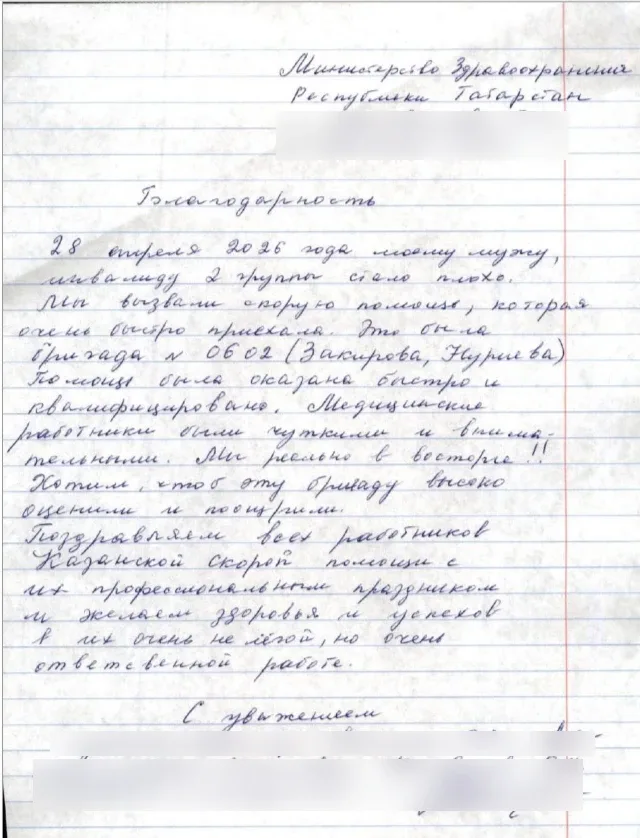 Министерство Здравоохранения
Республики Татарстан
Благодарность
28 апреля 2026 года моему мужу,
инвалиду 2 группы стало плохо.
Мы вызвали скорую помощь, которая
очень быстро приехала. Это была
бригада № 0602 (Закирова, Нуриева)
Помощь была оказана быстро и
квалифицировано. Медицинские
работники были чуткими и внима-
тельными. Мы реально в восторге!!
Хотим, чтоб эту бригаду высоко
оценили и поощрили.
Поздравляем всех работников
Казанской скорой помощи с
их профессиональным праздником
и желаем здоровья и успехов
в их очень не лёгкой, но очень
ответственной работе.
С уважением